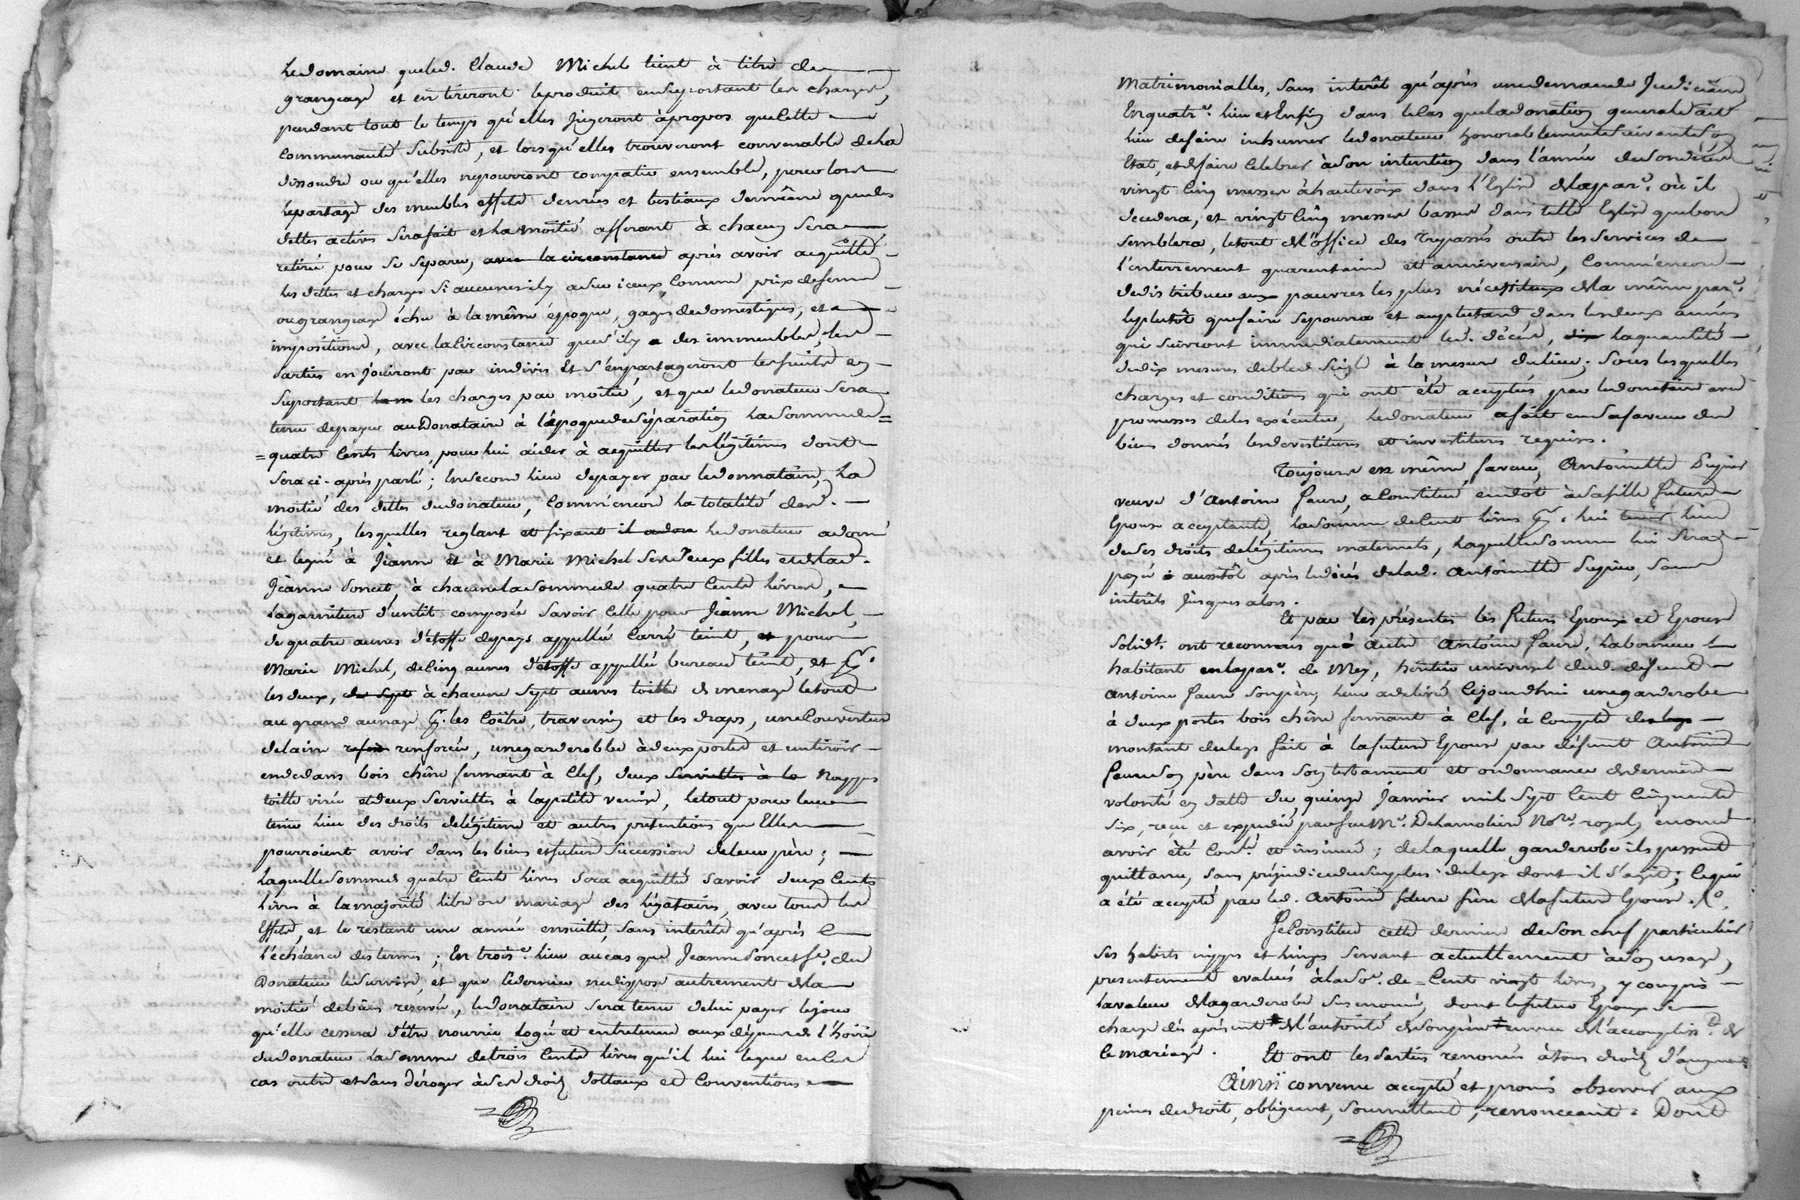 ledomaine queled. Claude Michel tient à titre de
grangeage et en tireront leproduit ensuportant les charges,
pendant tout le temps qu'elles jugeront àpropos quelette
Communauté subsiste, et lorsqu'elles trouveront convenable dela
dissoudre ou qu'elles nepourront compatir ensemble, pourlors
lepartage des meubles effets denrées et bestiaux demême queles
dettes actives serafait et la moitié afferant à chacun sera
retirée pour se séparer, avec la circonstance après avoir acquitté
les dettes et charges si aucunes ily a sur iceux, Comme prix deferme
ougrangeage échu à la même époque, gages dedomestiques, et
impositions, avec laCirconstance ques'ily a des immeubles, les
parties en jouiront par indivis et s'enpartageront lesfruits en
suportant les charges par moitié, et que ledonateur sera
tenu depayer auDonataire à l'époque de séparation lasomme de
quatre Cents livres, pour lui aider à acquitter les légitimes dont
sera ci-après parlé ; Ensecond lieu depayer par ledonnataire, la
moitié des dettes dudonateur, Comm'encore la totalité des
légitimes, lesquelles reglant et fixant il a donn ledonateur adonné
et legué à Jeanne et à Marie Michel ses deux filles et delad.
Jeanne Poncet, à chacune la somme de quatre Cents livres,
lagarniture d'un lit composée savoir Celle pour Jeanne Michel,
de quatre aunes d'étoffe depays appellée Carré teint, et pour
Marie Michel, deCinq aunes d'étoffe appellée bureau teint, et pr.
les deux, de sept à chacune sept aunes toille de menage letout
au grand aunage pr. les Coëtre, traversin et les draps, uneCouverture
delaine refor renforcée, unegarderobbe àdeuxportes et un tiroir
endedans bois chêne fermant à Clef, deux serviettes à la Nappes
toille virée etdeux serviettes à lapetite venise, letout pour leur
tenir lieu des droits delégitime et autres prétentions qu'Elles
pourroient avoir dans les biens etfuture succession deleur père ;
laquelle somme de quatre Cents livres sera acquittée savoir deux Cents
livres à la majorité libre ou mariage des légataires, avec tous les
Effets, et le restant une année ensuitte, sans intérêts qu'après
l'échéance des termes ; En trois.e lieu au cas que Jeanne Poncet fe. du
Donateur lesurvive, et que Cedernier nedispose autrement dela
moitié debiens reservée, ledonataire sera tenu delui payer lejour
qu'elle cessera d'être nourrie logée et entretenue aux dépens de l'hoirie
dudonateur lasomme detrois Cents livres qu'il lui legue en Ce
cas outre et sans déroger àses droits dottaux et Conventions
Matrimonialles, sans intérêt qu'après une demande Judiciaire
Enquatr.e lieu et Enfin dans leCas quela donation generale ait
lieu defaire inhumer ledonateur honorablement suivant son
Etat, et defaire Celebrer àson intention dans l'année deson décès
vingt Cinq messes àhautevoix dans l'Eglise delapar.e où il
decedera, et vingt Cinq messes basses dans telle Eglise quebon
semblera, letout del'office des Trepassés outre les services de
l'enterrement quarantaine et anniversaire, Comm'encore
dedistribuer aux pauvres les plus nécessiteux dela même par.e
leplutôt quefaire sepourra et auplustard dans lesdeux années
qui suivront immediatement led. décès, dix laquantité
dedix mesures debled seigle à la mesure dulieu ; sous lesquelles
charges et conditions qui ont été acceptées par ledonataire avec
promesses deles exécuter, ledonateur afait en sa faveur des
biens donnés lesdevestitures et investitures requises.
Toujours en même faveur, Antoinette Dupuis
veuve d'Antoine Faure, aConstitué endot àsafille future
Epouse acceptante, lasomme deCent livres pr. lui tenir lieu
deses droits delégitimes maternels, laquelle somme lui sera
payé aussitôt après ledécès delad. Antoinette Dupuis, sans
intérêts Jusques alors.
Et par les présentes les futurs Epoux et Epouse
solidt. ont reconnus que autre Antoine Faure, laboureur
habitant enlapar.e de Mey, héritier universel dud. defunt
Antoine Faure sonpère, leur adelivré Cejourdhui unegarderobe
à deux portes bois chêne fermant à Clef, à Compte du legs
montant dulegs fait à lafuture Epouse par défunt Antoine
Faure son père dans son testament et ordonnance dederniere
volonté en datte du quinze Janvier mil sept Cent Cinquante
six, reçu et expedié parfeu Me. Delamoliere Nore. royal, enonce
avoir été Cont. et insinué ; delaquelle garderobe ils passent
quittance, sans préjudice du surplus dulegs dont il s'agit ; Cequi
a été accepté par led. Antoine Faure frère dela future Epouse.
Se Constitue cette derniere deson chef particulier
ses habits nippes et linges servant actuellement àson usage,
presentement evalués à la so.e de Cent vingt livres, y compris
lavaleur delagarderobe susnommée, dont lefutur Epoux se
charge dès àprésent de l'autorité desonpère envers del'accomplist. de
Ce mariage. Et ont les parties renoncés àtous droits d'augment
Ainsi convenu accepté et promis observer aux
peines dedroit, obligeant, soumettant, renonceant : Dont